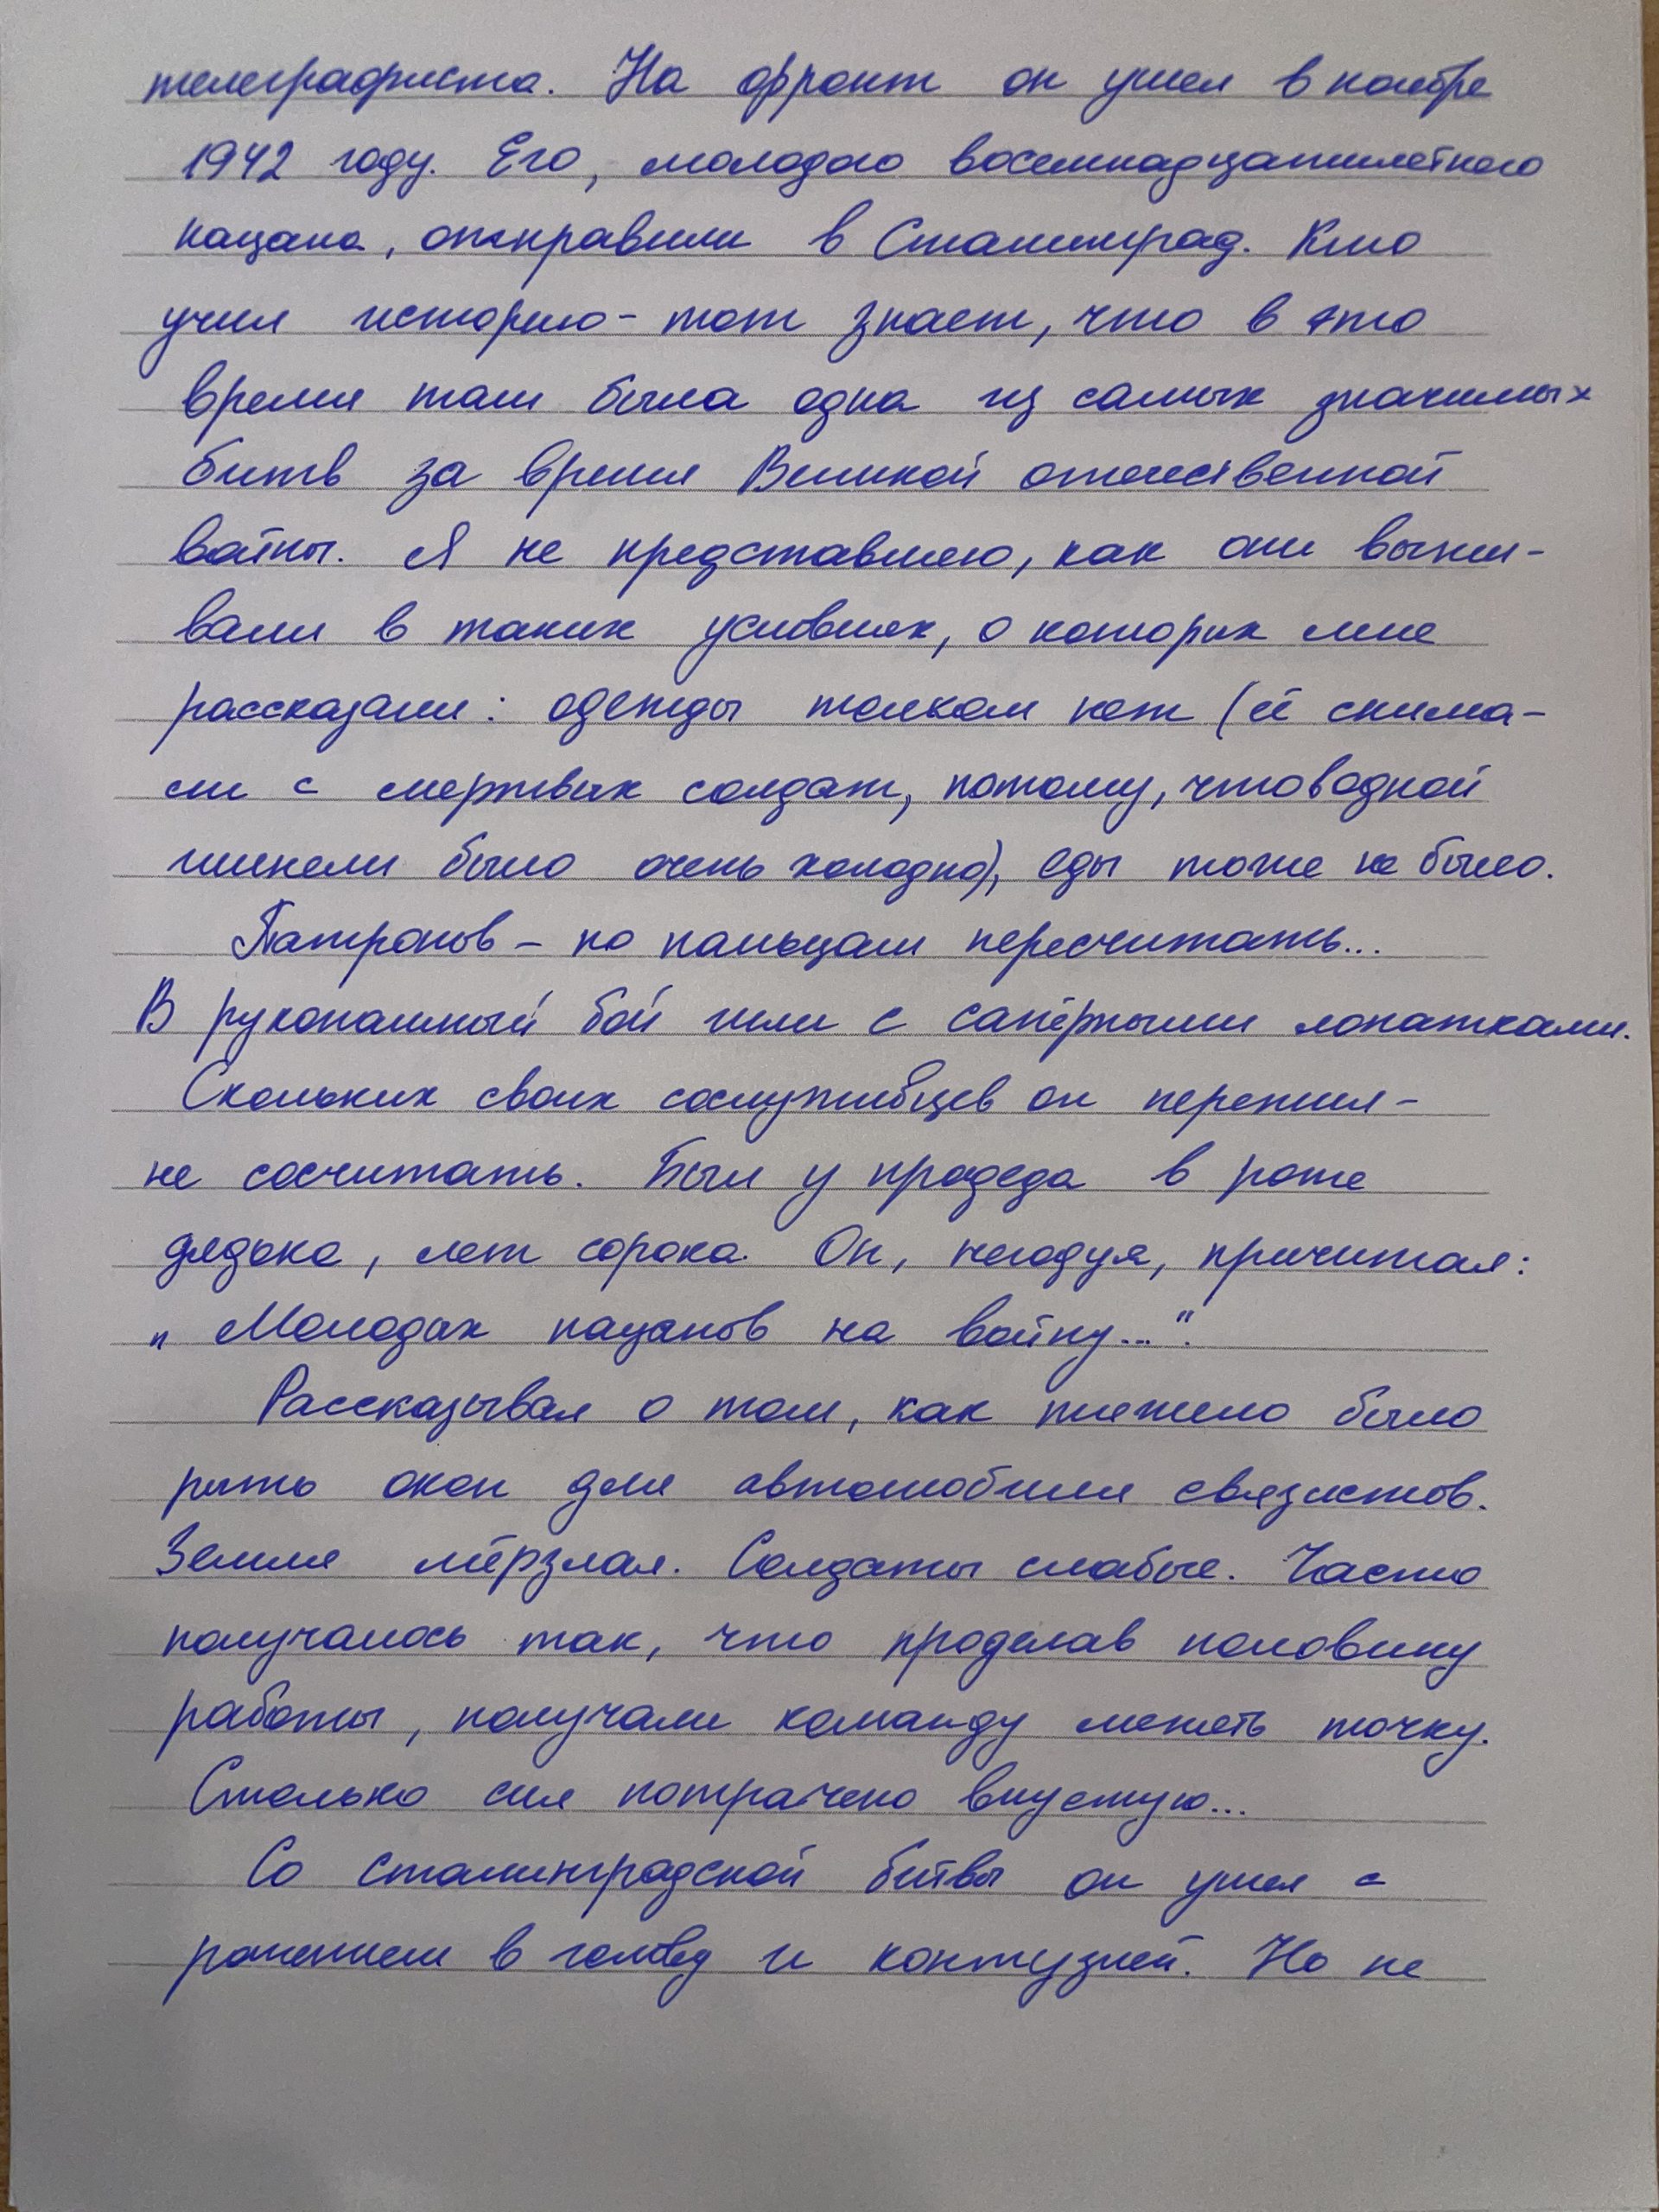 телеграфиста. На фронт он ушел в ноябре
1942 году. Его, молодого восемнадцатилетнего
пацана, отправили в Сталинград. Кто
учил историю - тот знает, что в это
время там была одна из самых значимых
битв за время Великой отечественной
войны. Я не представляю, как они выжи-
вали в таких условиях, о которых мне
рассказали: одежды толком нет (её снима-
ли с мертвых солдат, потому, что в одной
шинели было очень холодно), еды тоже не было.
Патронов – по пальцам пересчитать...
В рукопашный бой шли с сапёрными лопатками.
Скольких своих сослуживцев он пережил –
не сосчитать. Был у прадеда в роте
дядька, лет сорока. Он, негодуя, причитал:
„Молодых пацанов на войну...".
Рассказывал о том, как тяжело было
рыть окоп для автомобиля связистов.
Земля мёрзлая. Солдаты слабые. Часто
получалось так, что проделав половину
работы, получали команду менять точку.
Столько сил потрачено впустую...
Со сталинградской битвы он ушел с
ранением в голову и контузией. Но не